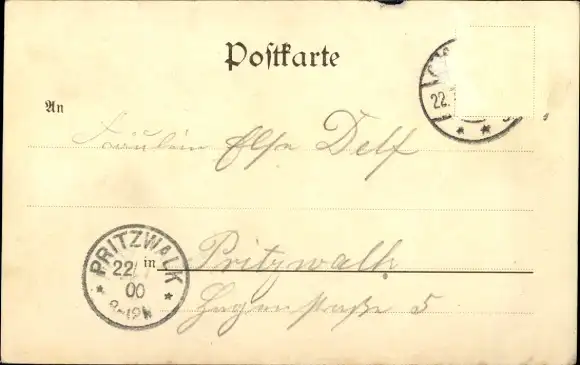 Postkarte
22.
An
Fräulein Elsa Delf
PRITZWALK
22
00
in Pritzwalk
Hagenstraße 5